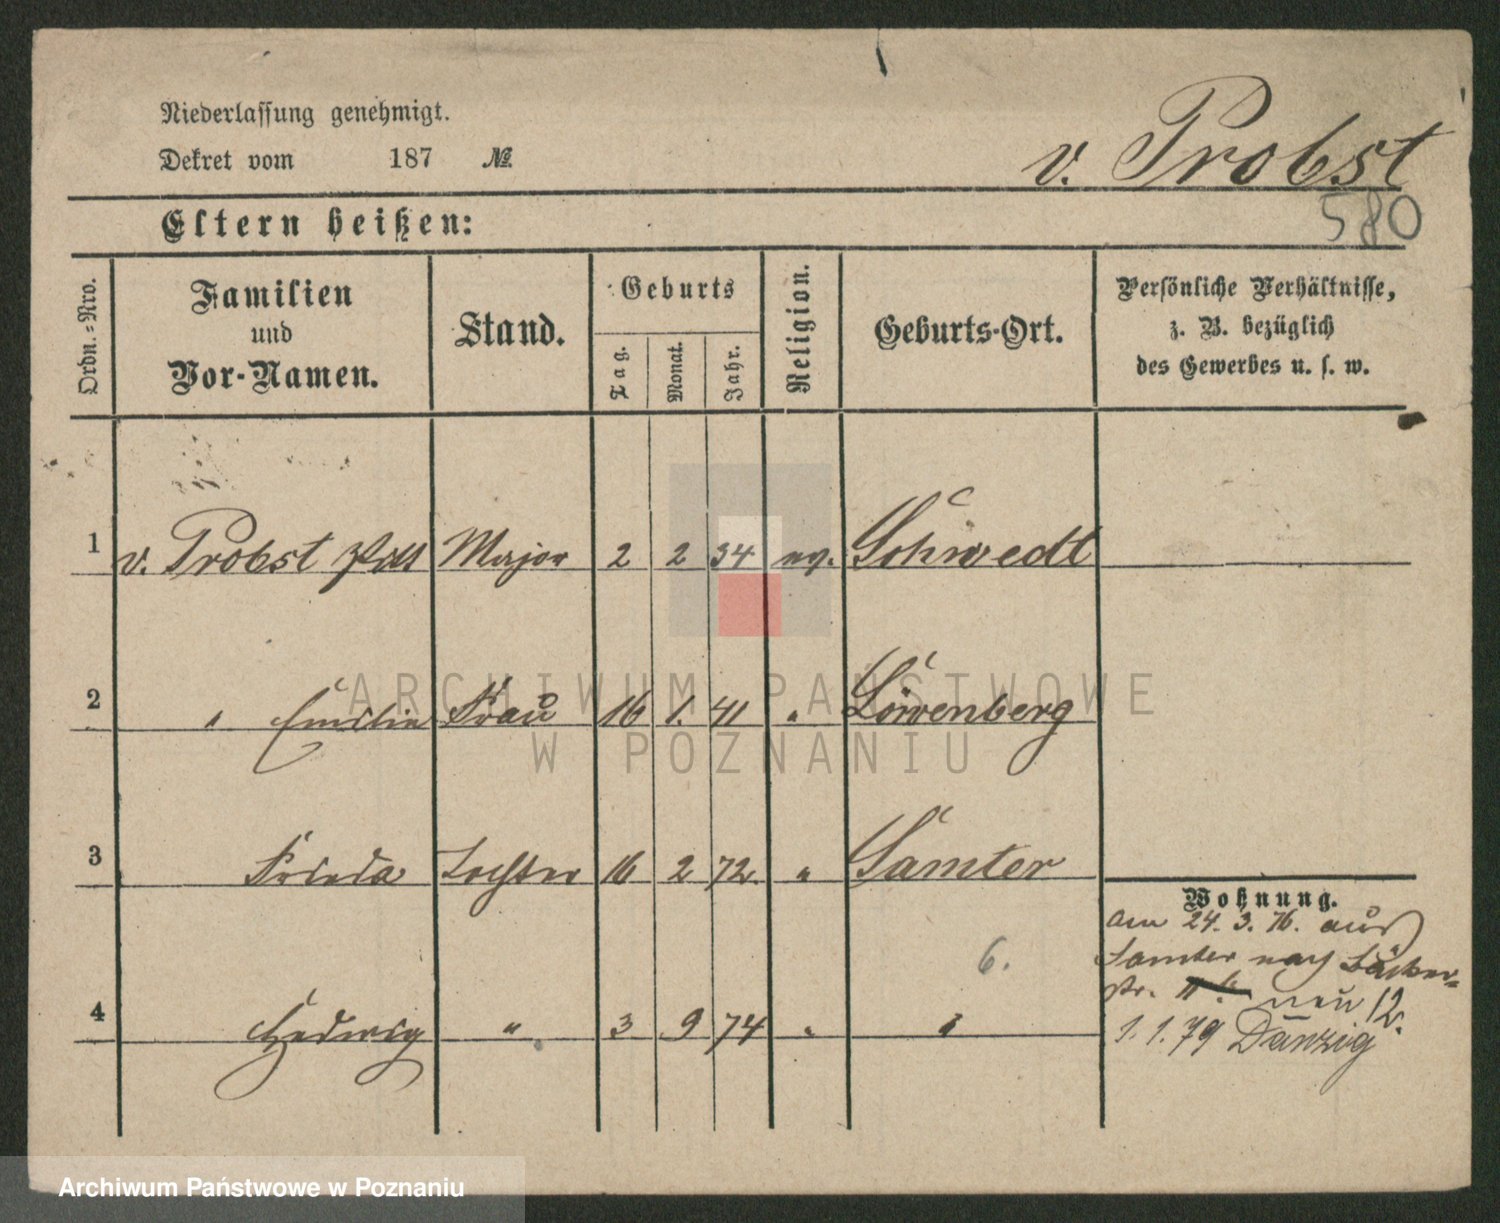 Niederlassung genehmigt.
Dekret vom 187 №
v. Probst
580
Eltern heißen:
Ordn.-Nro.
Familien
und
Vor-Namen.
Stand.
Geburts
Tag.
Monat.
Jahr.
Religion.
Geburts-Ort.
Persönliche Verhältnisse,
z. B. bezüglich
des Gewerbes u. s. w.
1 v. Probst Major 2 2 34 ev. Schwedt
2 " Emilie Frau 16 1. 41 " Löwenberg
3 Frieda Tochter 16 2 72 " Samter
Wohnung.
am 24. 3. 76. aus
Samter nach Bäcker-
str. neu 12.
6.
4 Hedwig " 3 9 74 " "
1. 1. 79 Danzig
ARCHIWUM PAŃSTWOWE
W POZNANIU
Archiwum Państwowe w Poznaniu